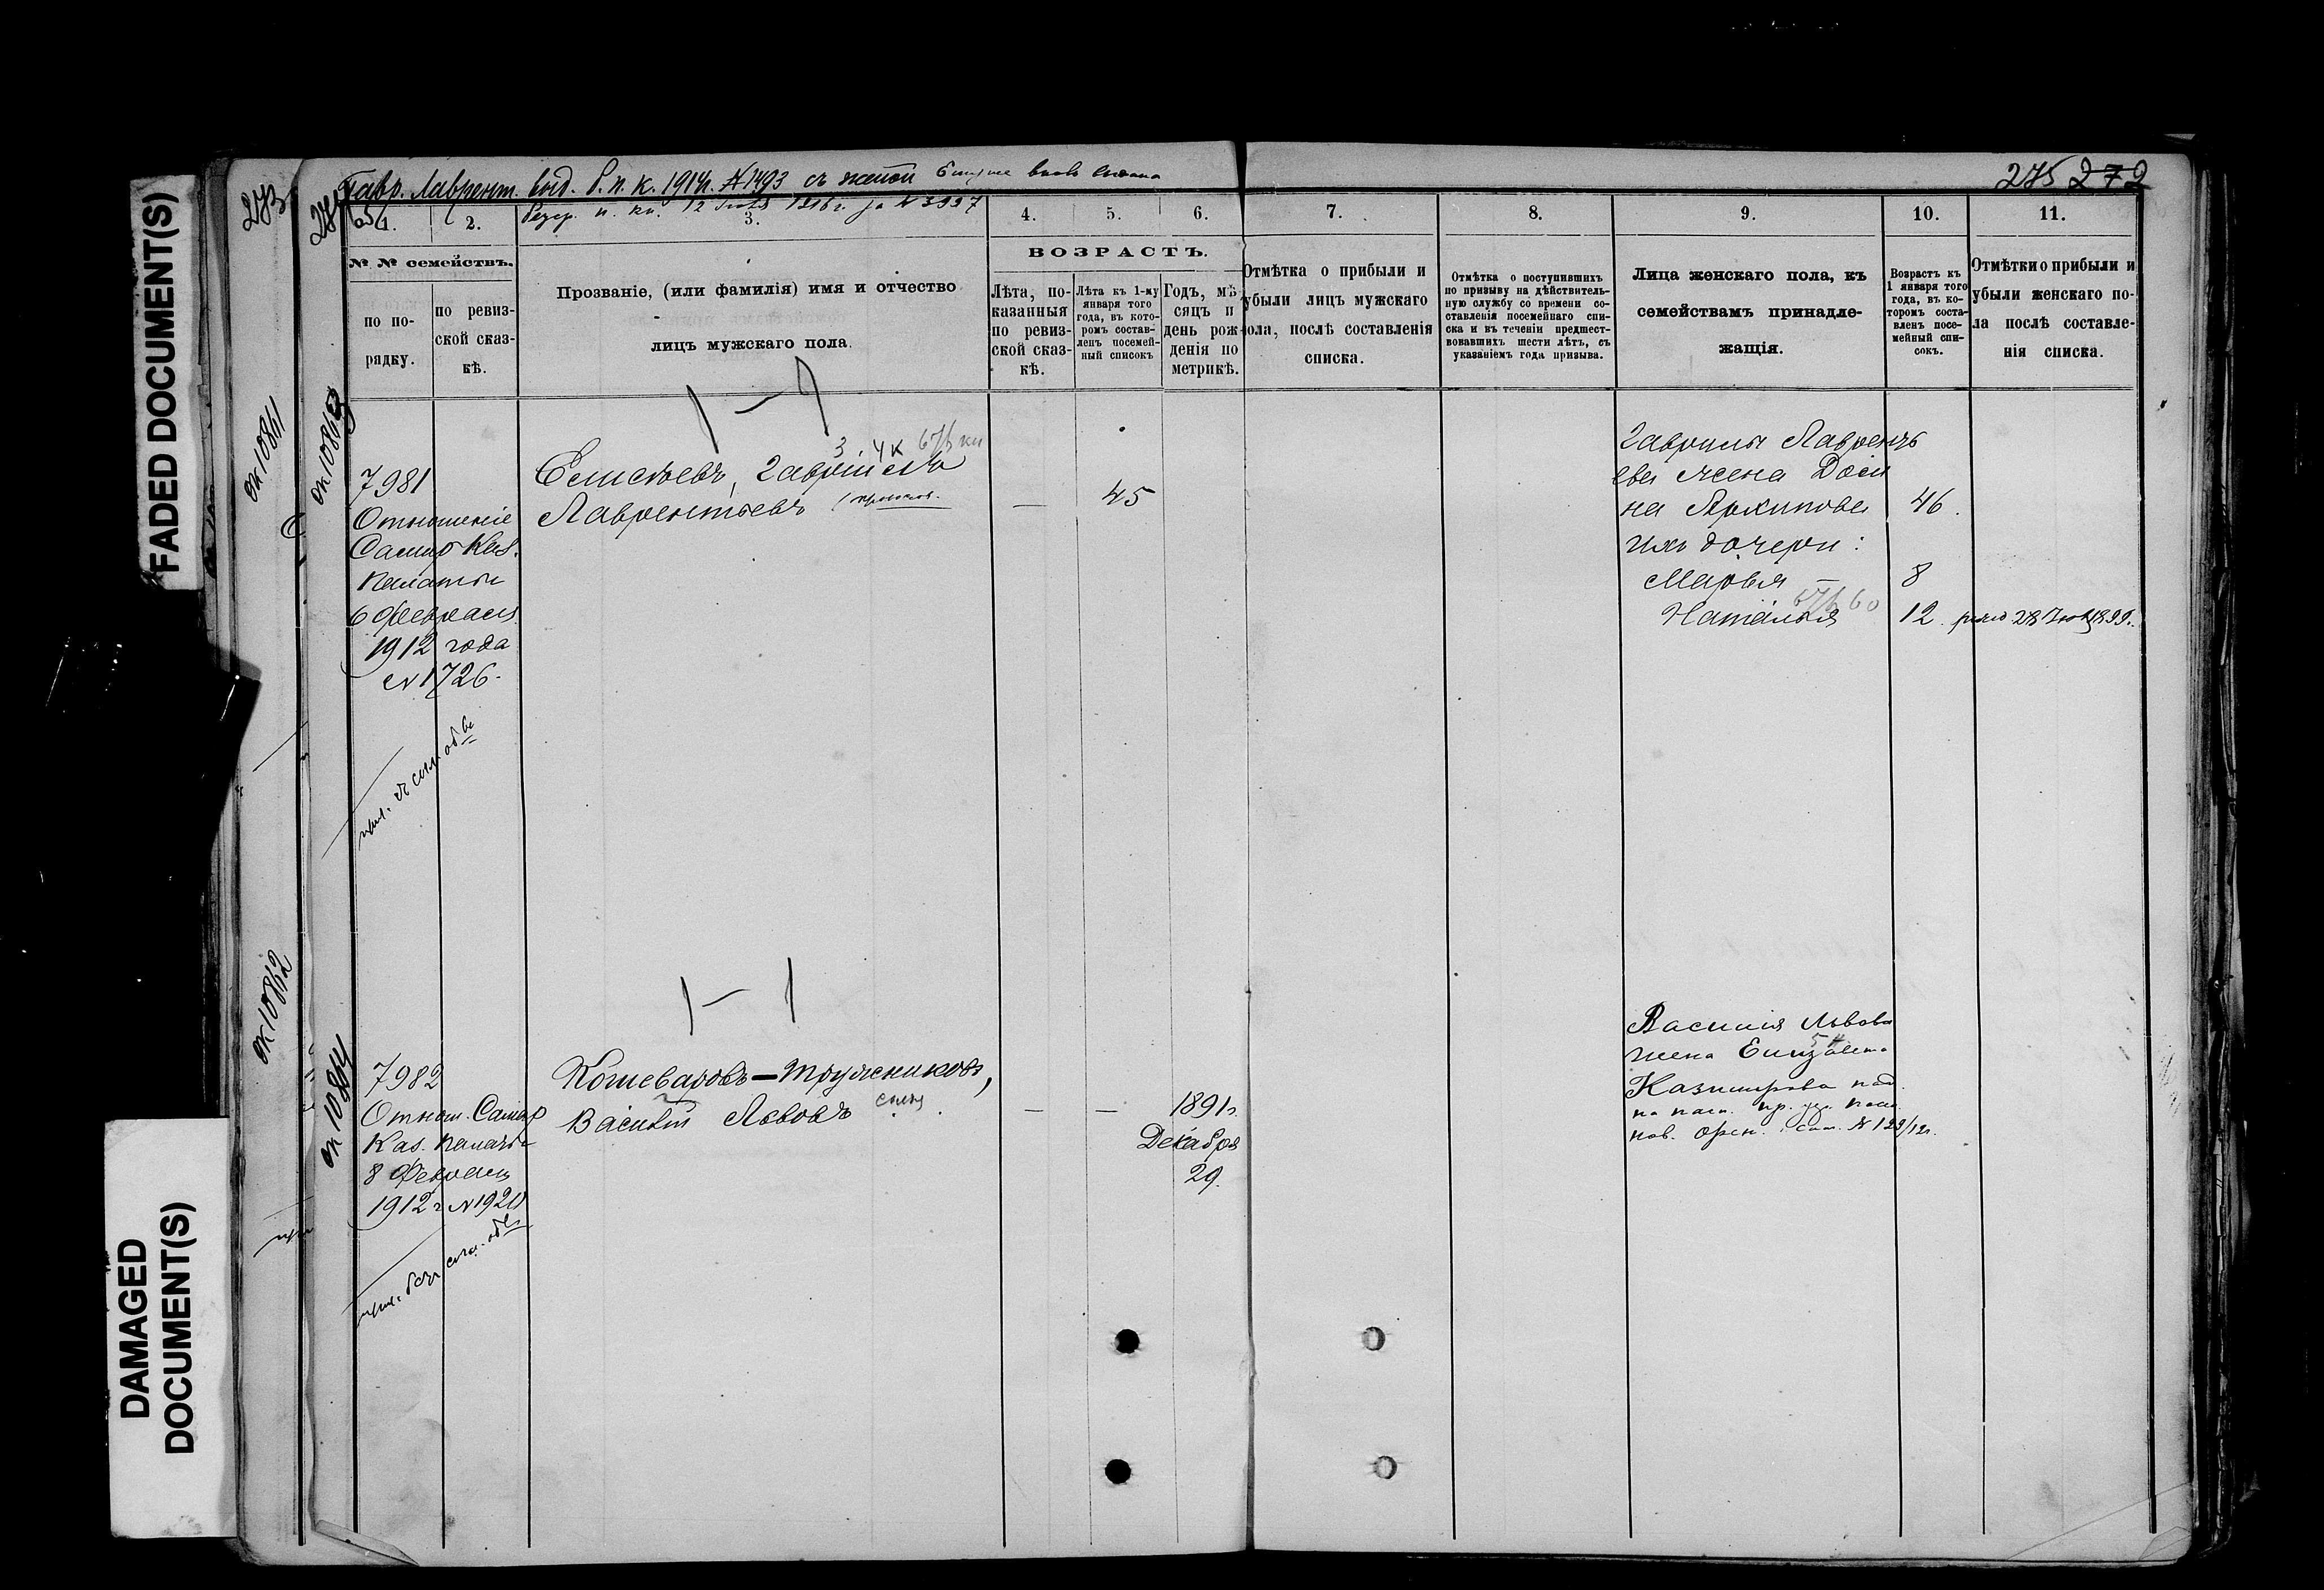 FADED DOCUMENT(S)
DAMAGED
DOCUMENT(S)
273
274
275 272
Гавр. Лаврент. выд. б. п. к. 1914 г. № 1493 съ женой
1.
2.
3.
4.
5.
6.
7.
8.
9.
10.
11.
№ № семействъ.
по по-
рядку.
по ревиз-
ской сказ-
кѣ.
Прозваніе, (или фамилія) имя и отчество
лицъ мужскаго пола.
ВОЗРАСТЪ.
Лѣта, по-
казанныя
по ревиз-
ской сказ-
кѣ.
Лѣта къ 1-му
января того
года, въ кото-
ромъ состав-
ленъ посемей-
ный списокъ
Годъ, мѣ-
сяцъ и
день рож-
денія по
метрикѣ.
Отмѣтка о прибыли и
убыли лицъ мужскаго
пола, послѣ составленія
списка.
Отмѣтка о поступившихъ
по призыву на дѣйствитель-
ную службу со времени со-
ставленія посемейнаго спи-
ска и въ теченіи предшест-
вовавшихъ шести лѣтъ, съ
указаніемъ года призыва.
Лица женскаго пола, къ
семействамъ принадле-
жащія.
Возрастъ къ
1 января того
года, въ ко-
торомъ соста-
вленъ посе-
мейный спи-
сокъ.
Отмѣтки о прибыли и
убыли женскаго по-
ла послѣ составле-
нія списка.
ок 10861
ок 10863
1 – 1
7981
Отношеніе
Самар Каз.
Палаты
6 Февраля
1912 года
№ 1726.
Елисѣевъ, Гавріилъ
Лаврентьевъ
—
45
Гавріила Лаврентъ
ева жена Дом
на Архипова
46.
ихъ дочери:
Марья
8
Наталья
12
ок 10862
ок 10864
1 – 1
7982
Отнош. Самар
Каз. Палаты
8 Февраля
1912 г № 1920
Кошеваровъ–Труженниковъ,
Василій Львовъ
—
—
1891 г.
Декабря
29.
Василія Львова
жена Елизавета
Казимирова